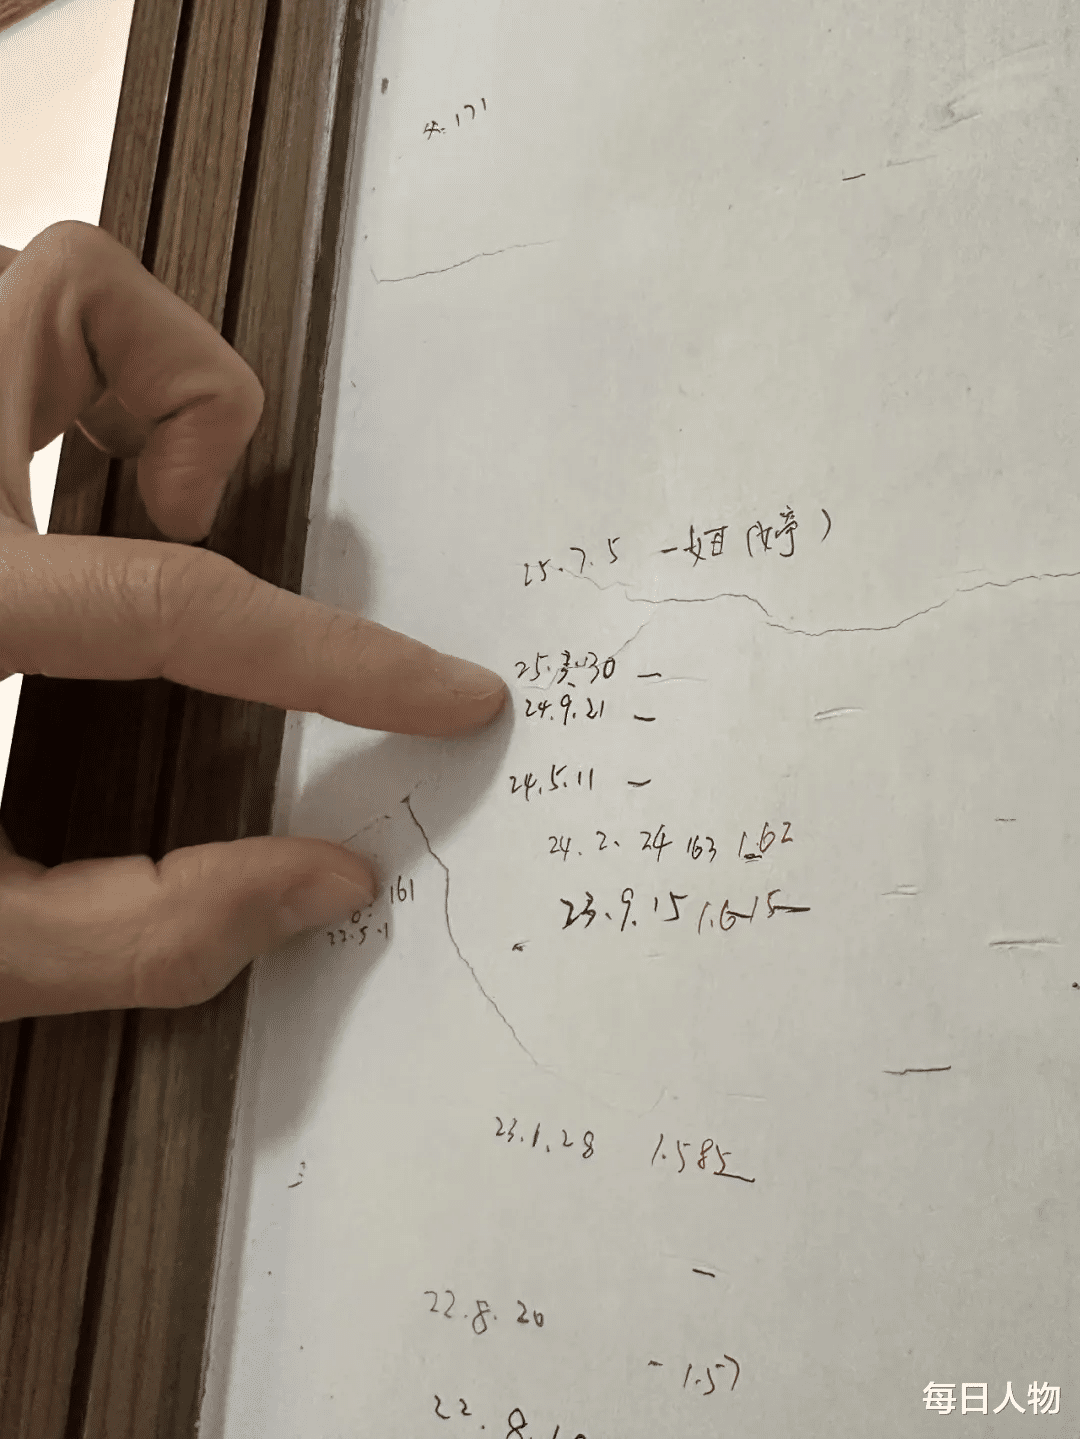 171
25.7.5 一妞(婷)
25.3.30 —
24.9.21 —
24.5.11 —
24.2.24 163 1.62
23.9.15 1.615
161
22.5.1
23.1.28 1.585
22.8.20
- 1.57
22.8.
每日人物